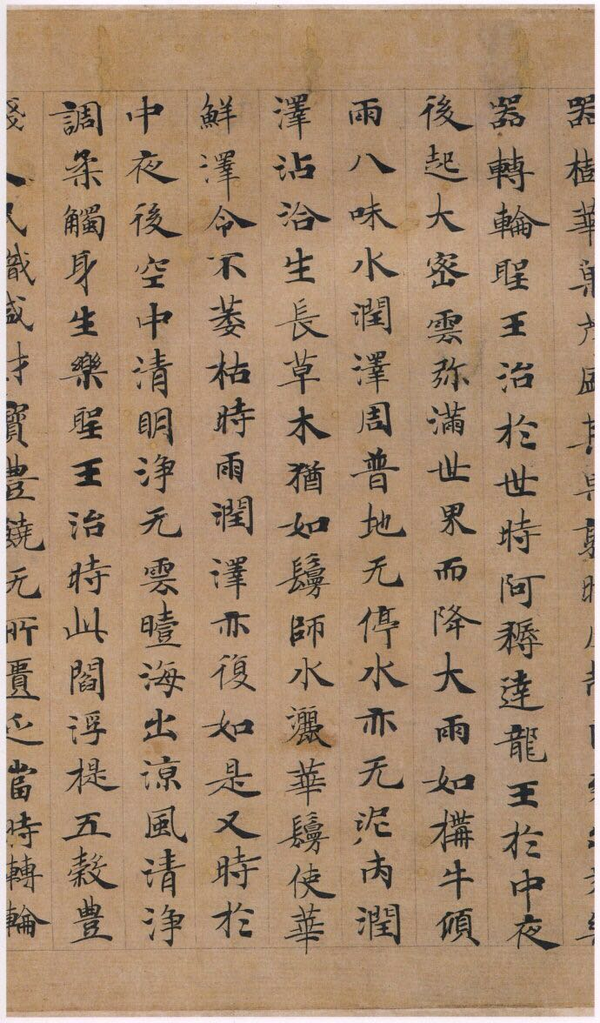 器樹華菓茂盛其果熟時
器轉輪聖王治於世時阿耨達龍王於中夜
後起大密雲弥滿世界而降大雨如構牛頃
雨八味水潤澤周普地无停水亦无泥潤
澤沾洽生長草木猶如鬘師水灑華鬘使華
鮮澤令不萎枯時雨潤澤亦復如是又時於
中夜後空中清明浄无雲曀海出涼風清浄
調柔觸身生樂聖王治時此閻浮提五穀豊
賤人民熾盛財寶豊饒无所匱乏當時轉輪